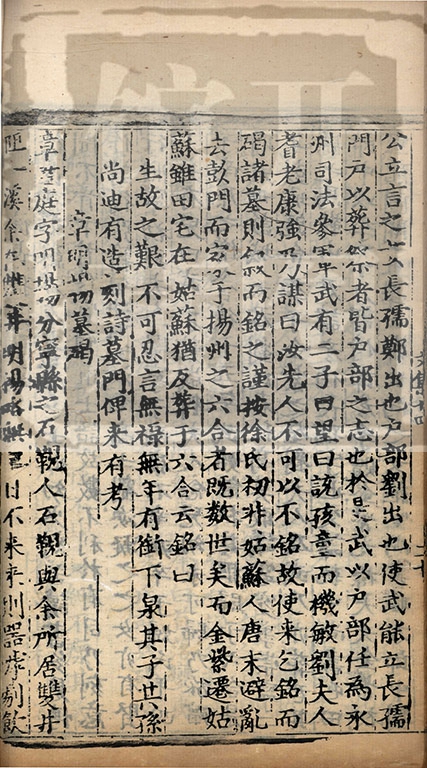 公立言之 長孺鄭出也戶部劉出也使武能立長孺
門戶以葬祭者皆戶部之志也於是武以戶部任為永
州司法叅軍武有二子曰望曰該孩童而機敏劉夫人
耆老康強乃謀曰汝先人不可以不銘故使来乞銘而
碣諸墓則叙而銘之謹按徐氏初非姑蘇人唐末避亂
去彭門而家于揚州之六合者既数世矣而金紫遷姑
蘇雖田宅在姑蘇猶反葬于六合云銘曰
生故之艱不可忍言無祿無年有銜下泉其子其孫
尚迪有造刻詩墓門俾来有考
明揚墓碣
庭字明揚分寧縣之石觀人石觀與余所居雙井
一溪余 明揚略無 日不来来則 劇飲